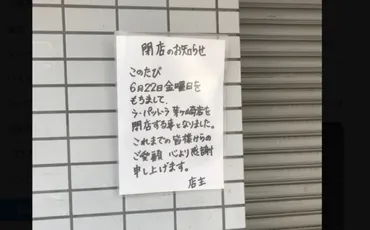 閉店のお知らせ
このたび
6月22日金曜日を
もちまして、
ラ・パットーラ 茅ヶ崎店を
閉店する事となりました。
これまでの皆様からの
ご愛顧 心より感謝
申し上げます。
店主